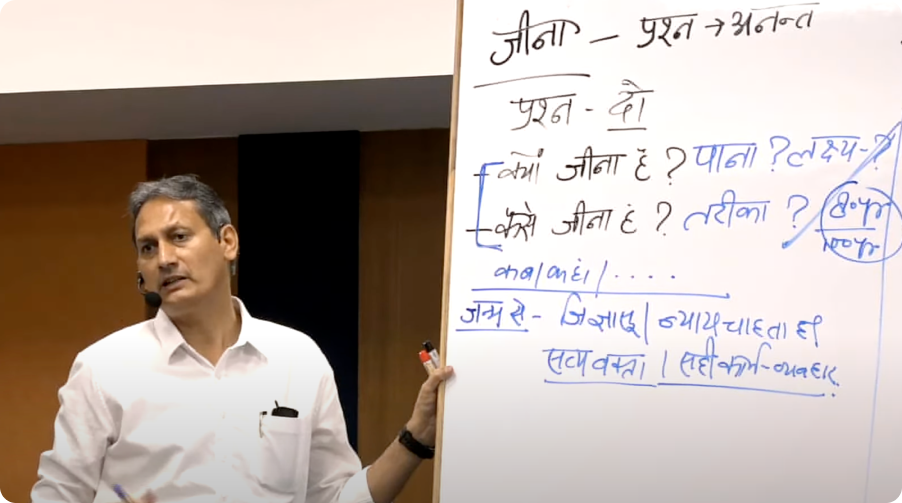 जीना - प्रश्न → अनन्त
प्रश्न - दो
क्यों जीना है ? पाना ? लक्ष्य - ?
कैसे जीना है ? तरीका ? 80yr
100yr
कब / कहां / . . . .
जन्म से - जिज्ञासु / न्याय चाहता है /
सत्य वक्ता / सही कार्य - व्यवहार